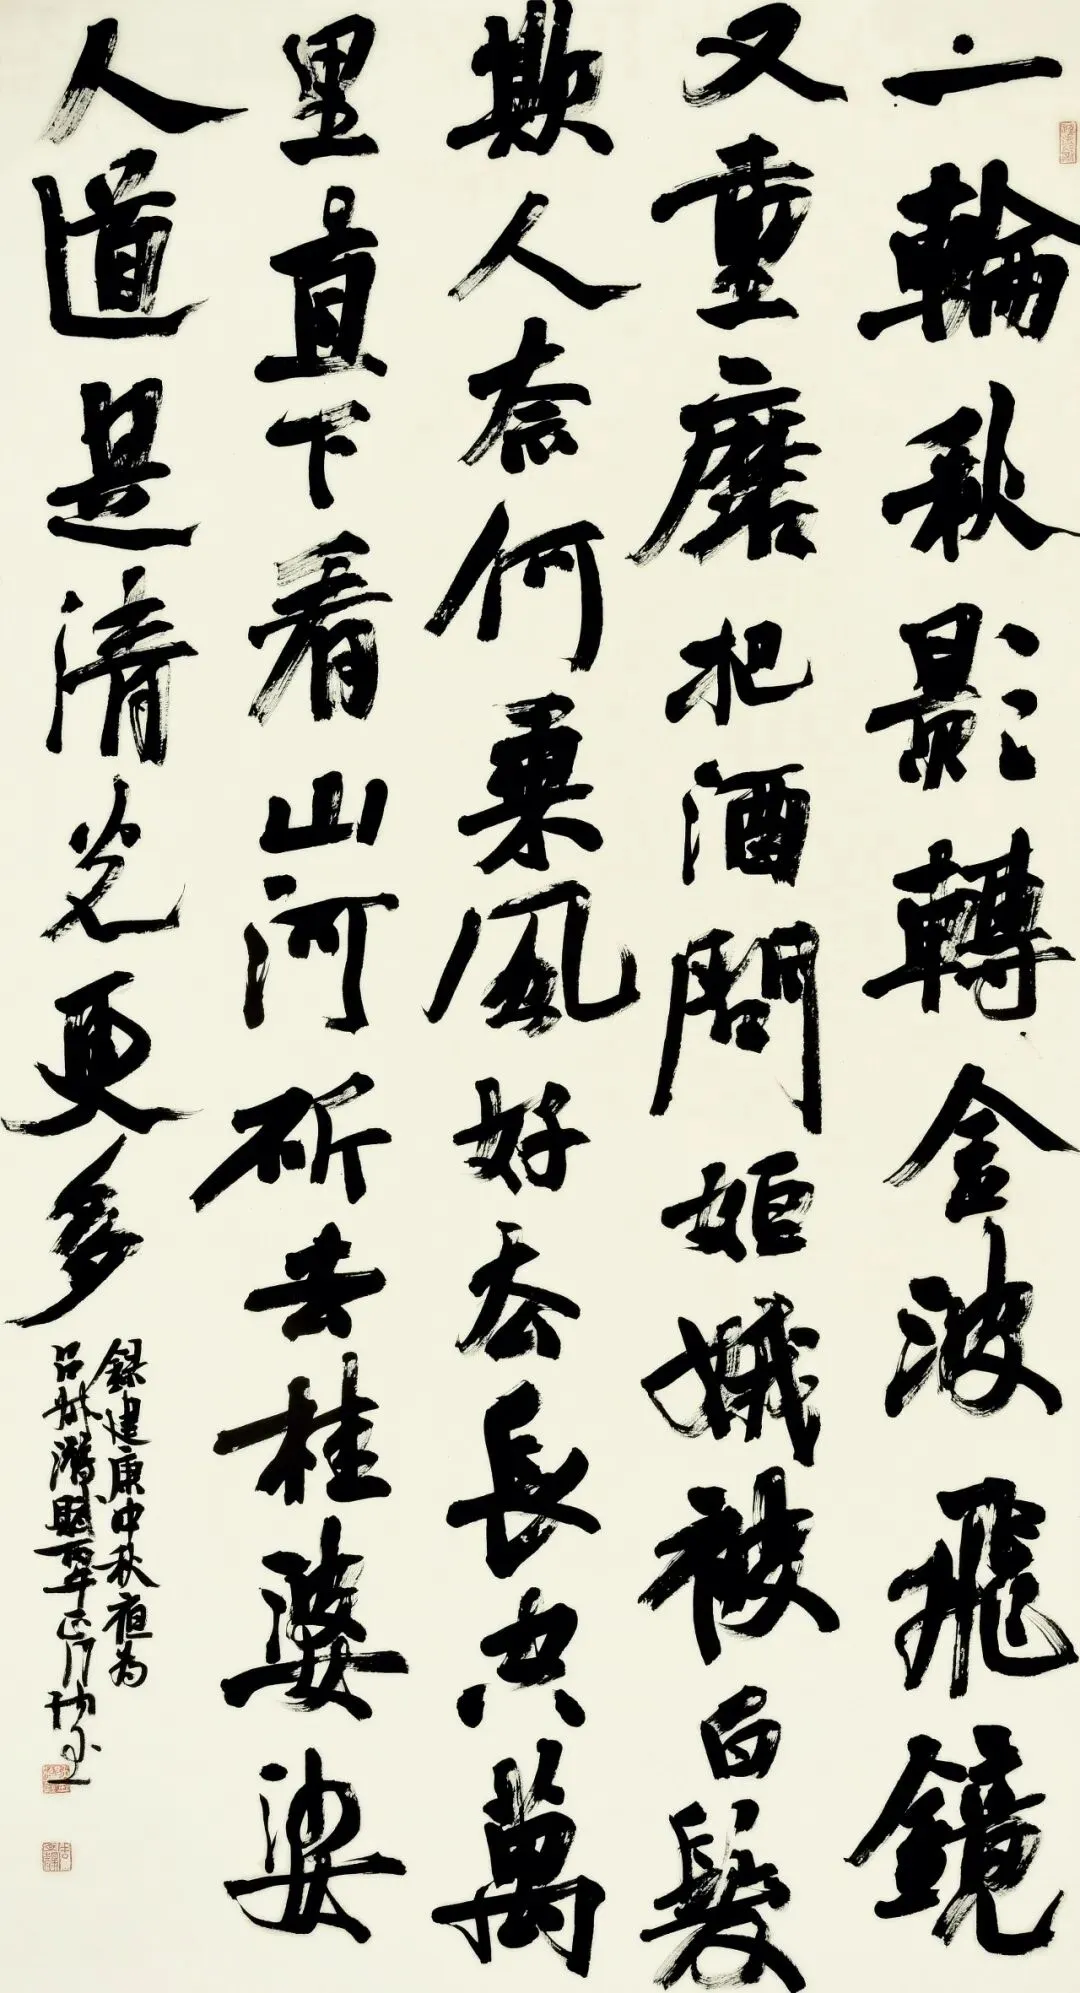 一輪秋影轉金波飛鏡
又重磨把酒問姮娥被白髮
欺人奈何乘風好去長空萬
里直下看山河斫去桂婆娑
人道是清光更多
錄建康中秋夜为
呂叔潛賦